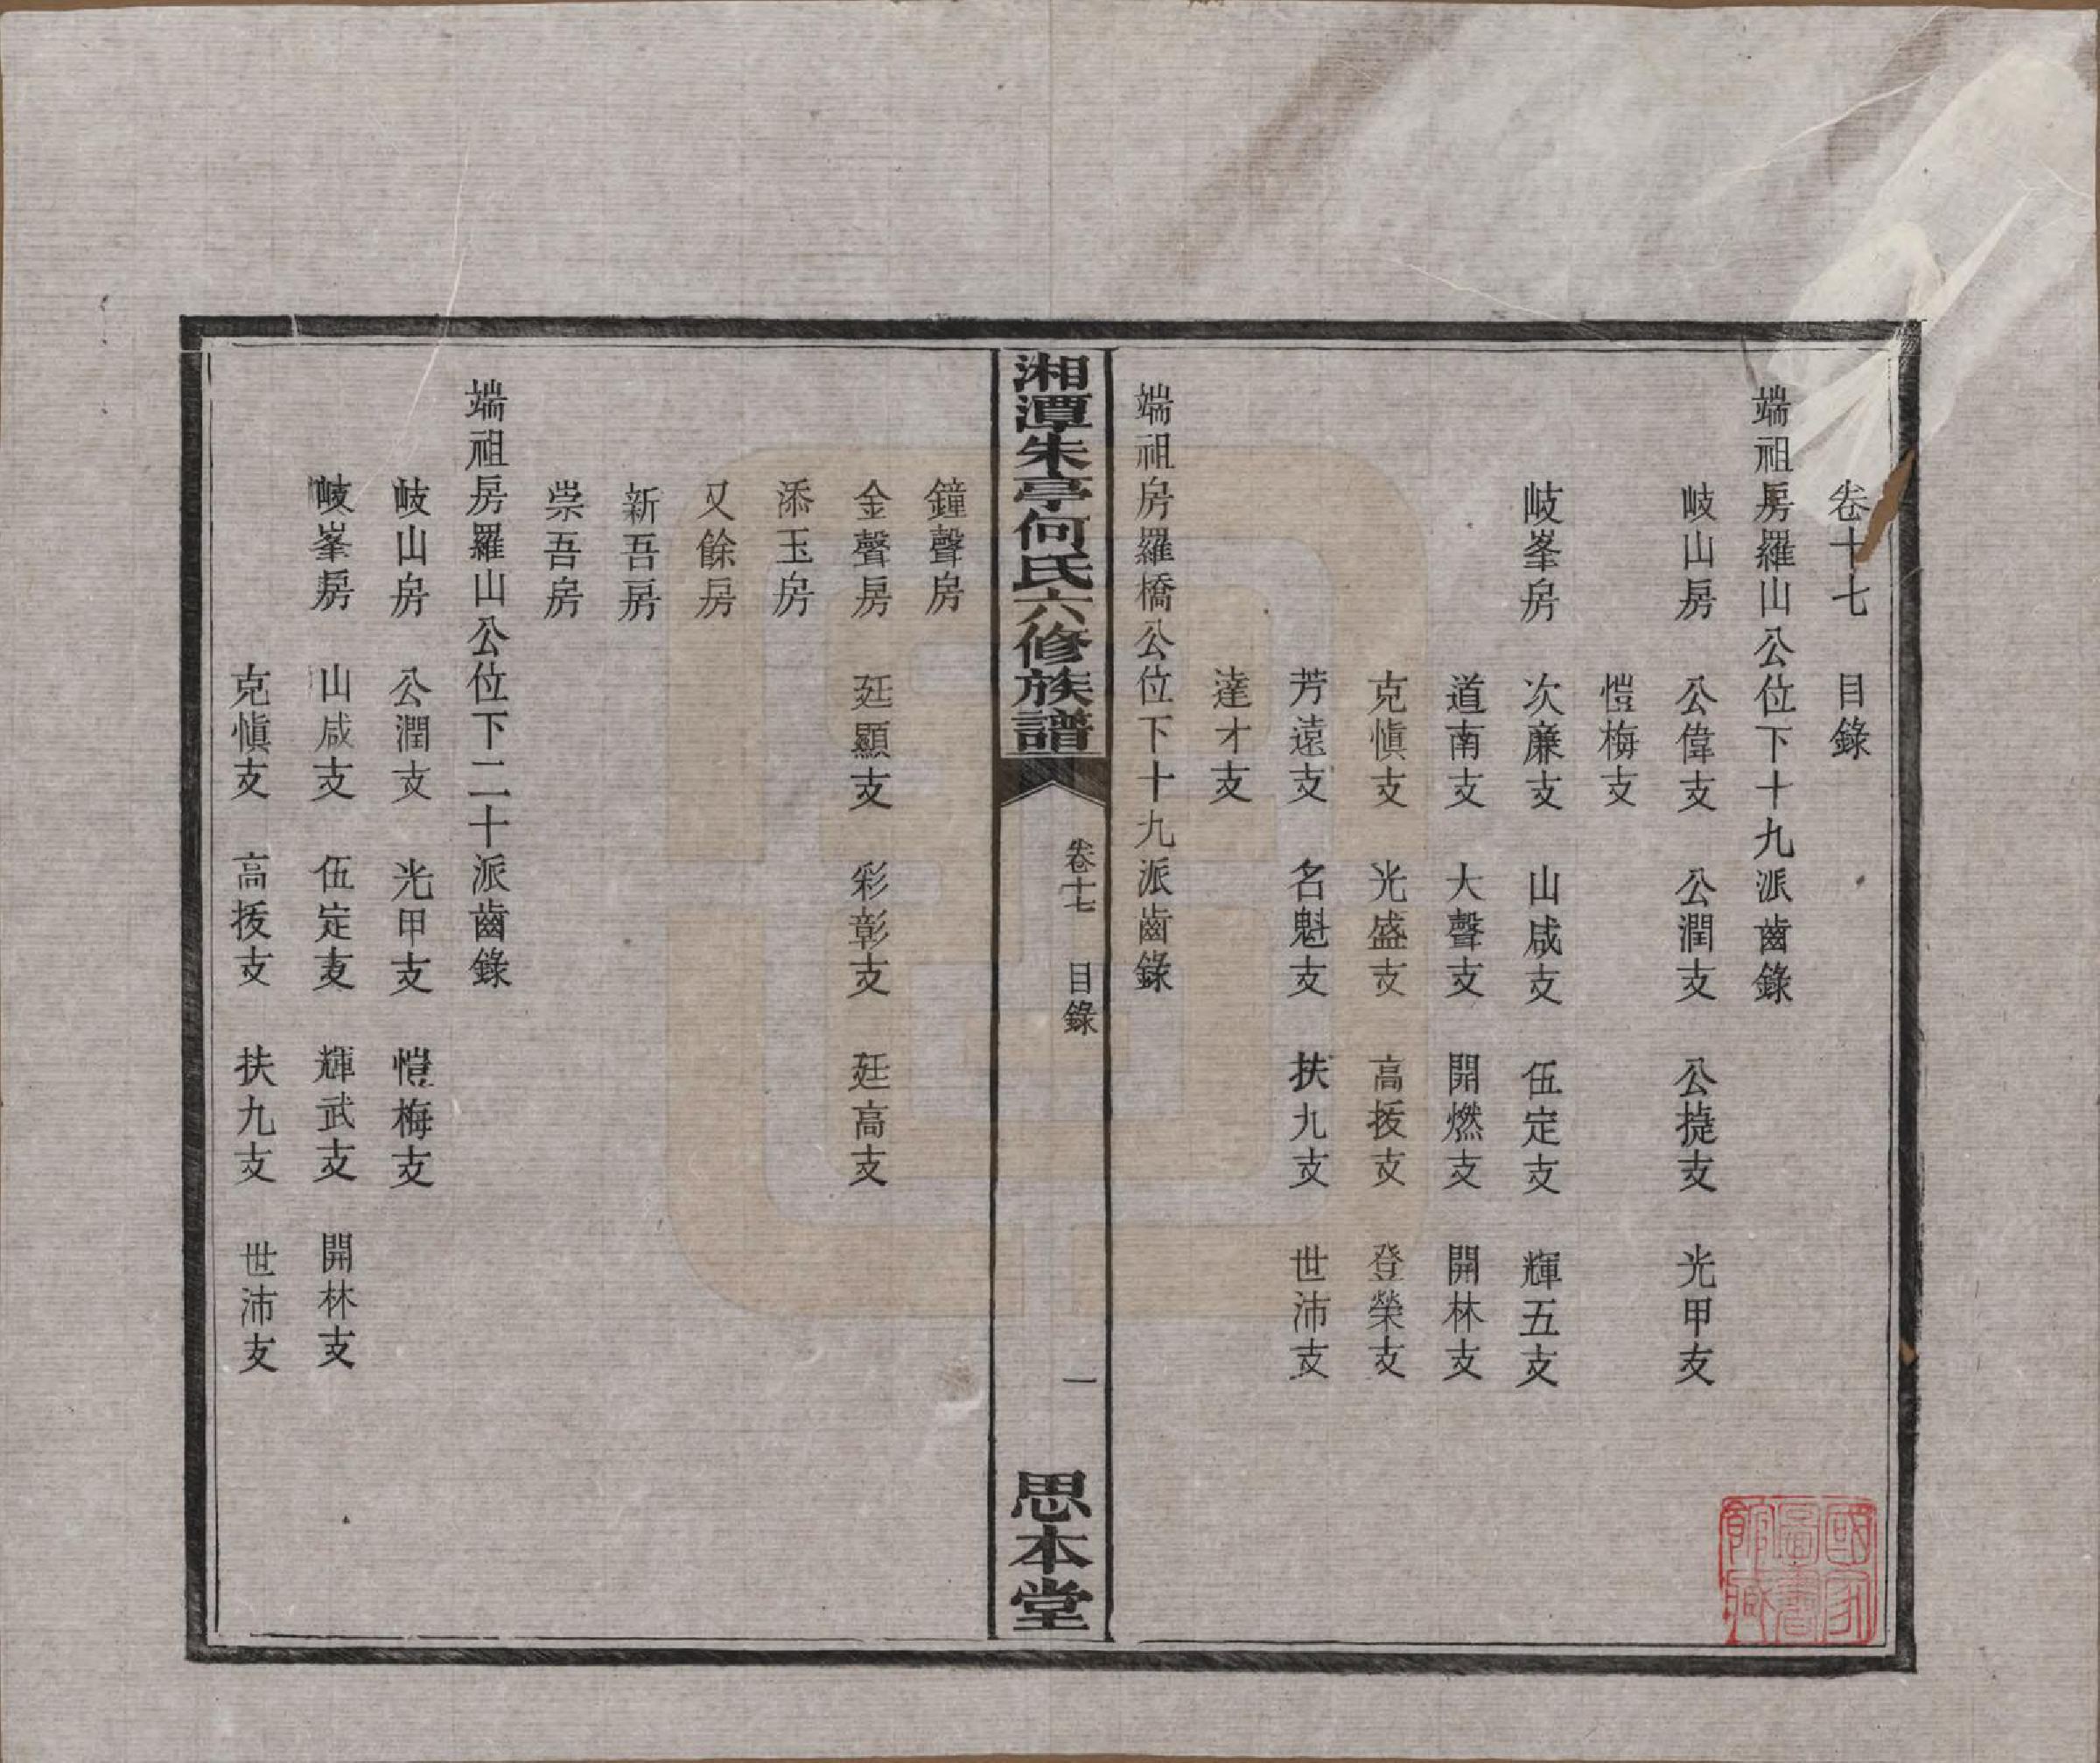 卷十七　目錄
端祖房羅山公位下十九派齒錄
岐山房　公偉支　公潤支　公㨗支　光甲支
愷梅支
岐峯房　次廉支　山咸支　伍定支　輝五支
道南支　大聲支　開燃支　開林支
克愼支　光盛支　高拔支　登榮支
芳遠支　名魁支　扶九支　世沛支
達才支
端祖房羅橋公位下十九派齒錄
湘潭朱亭何氏六修族譜　卷十七　目錄　一　思本堂
鐘聲房
金聲房　廷顯支　彩彰支　廷高支
添玉房
又餘房
新吾房
崇吾房
端祖房羅山公位下二十派齒錄
岐山房　公潤支　光甲支　愷梅支
岐峯房　山咸支　伍定支　輝武支　開林支
克愼支　高拔支　扶九支　世沛支
國家圖書館藏